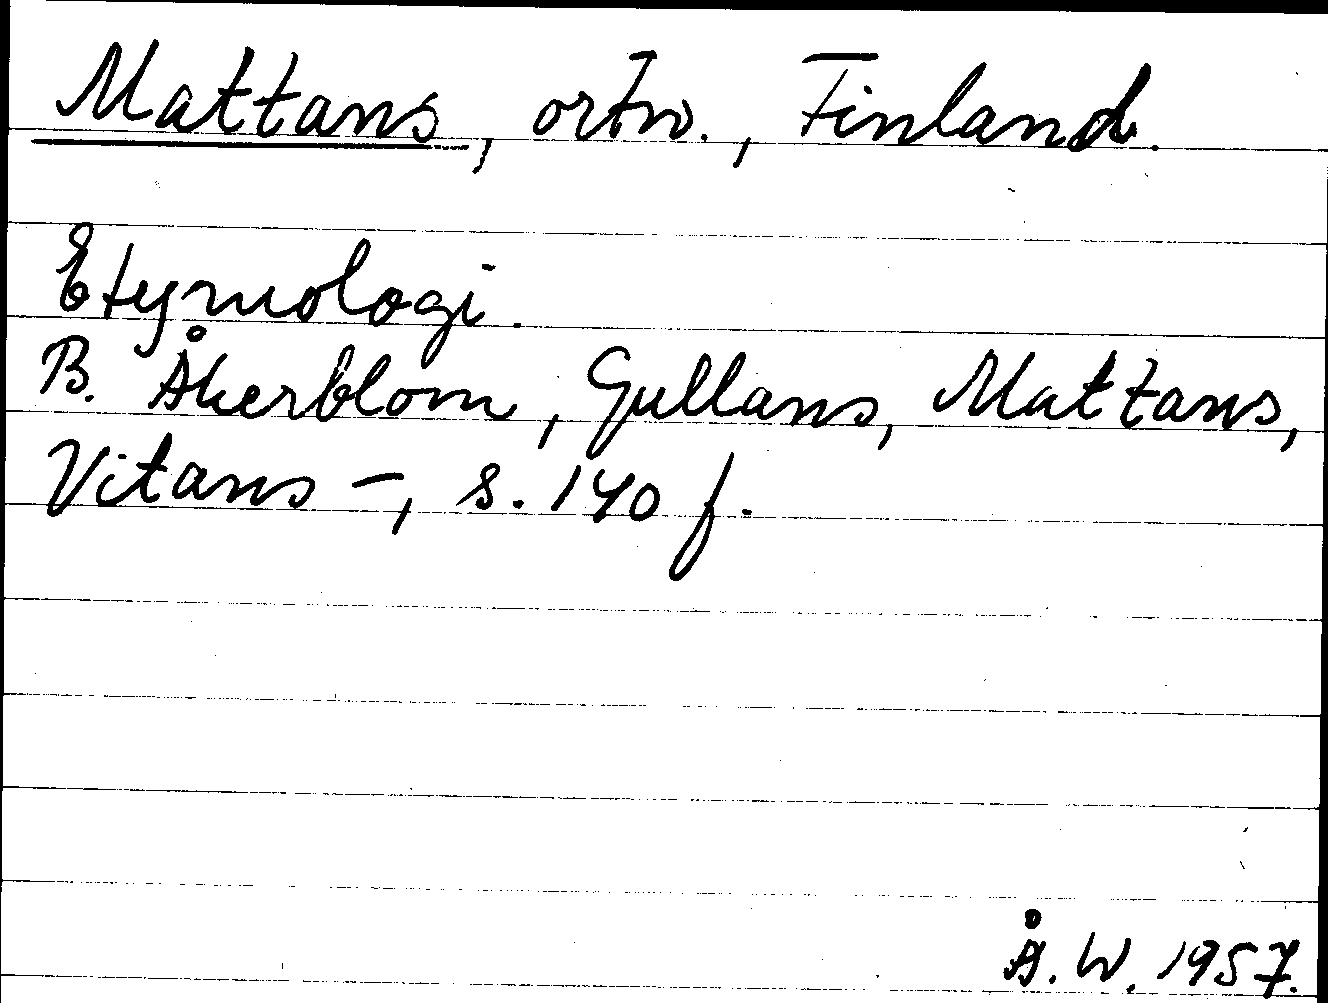 Mattans, ortn., Finland.
Etymologi.
B. Åkerblom, Gullans, Mattans,
Vitans –, s. 140 f.
Å. W. 1957.